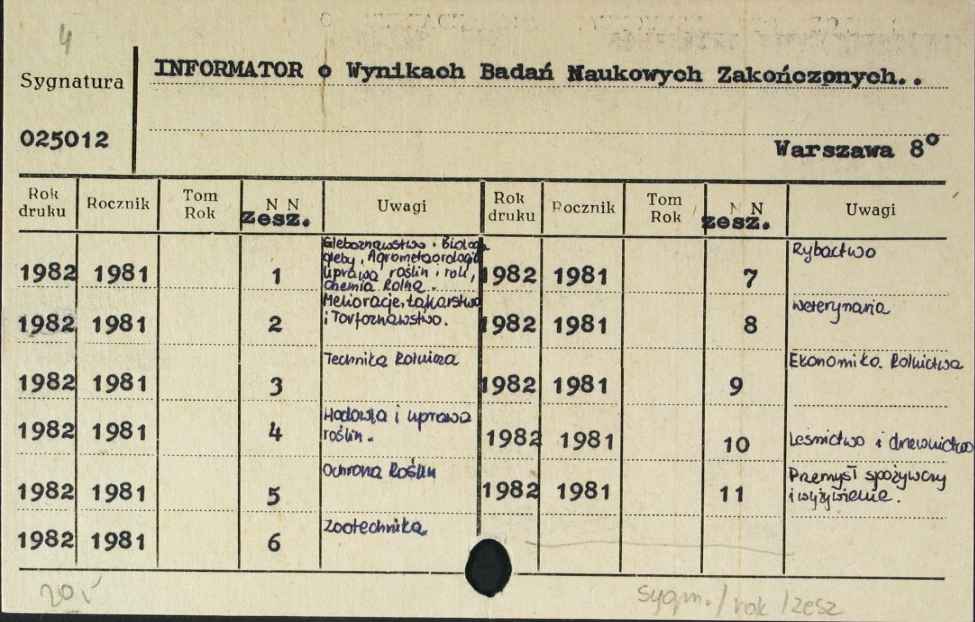 4
Sygnatura
INFORMATOR o Wynikach Badań Naukowych Zakończonych..
025012
Warszawa 8°
Rok druku Rocznik Tom Rok N N zesz. Uwagi Rok druku Rocznik Tom Rok N N zesz. Uwagi
1982 1981 1 Gleboznawstwo. Biologia
gleby, Agrometeorologia
uprawa roślin i roli,
chemia Rolna.
1982 1981 7 Rybactwo
1982 1981 2 Melioracje, Łąkarstwo
i Torfoznawstwo.
1982 1981 8 Weterynaria
1982 1981 3 Technika Rolnicza
1982 1981 9 Ekonomika Rolnictwa
1982 1981 4 Hodowla i uprawa
roślin.
1982 1981 10 Leśnictwo i drzewnictwo
1982 1981 5 Ochrona Roślin
1982 1981 11 Przemysł spożywczy
i wyżywienie.
1982 1981 6 Zootechnika
sygn. / rok / zesz